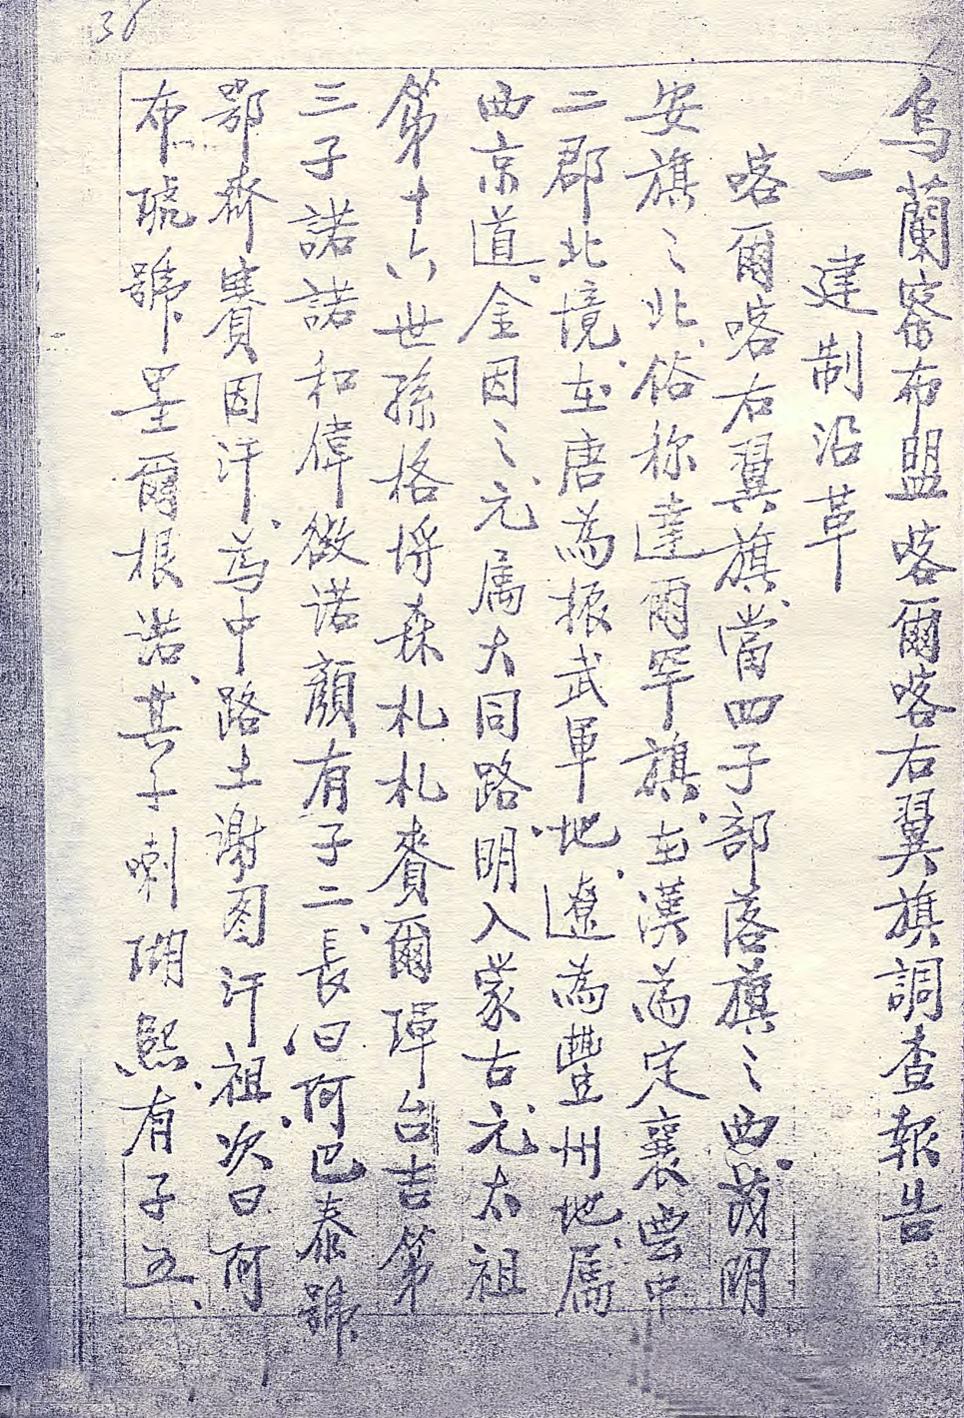 38
烏蘭察布盟喀爾喀右翼旗調查報告
一 建制沿革
喀爾喀右翼旗、當四子部落旗之西、茂明
安旗之北、俗称達爾罕旗、在漢為定襄雲中
二郡北境、在唐為振武軍地、遼為豐州地、屬
西京道、金因之、元属大同路、明入蒙古、元太祖
第十六世孫格埒森札札賚爾琿台吉第
三子諾諾和偉徵诺顏有子二、長曰阿巴泰號
鄂齊賽因汗、為中路土谢图汗祖、次曰阿
布琥號墨爾根诺、其子喇瑚熙、有子五、